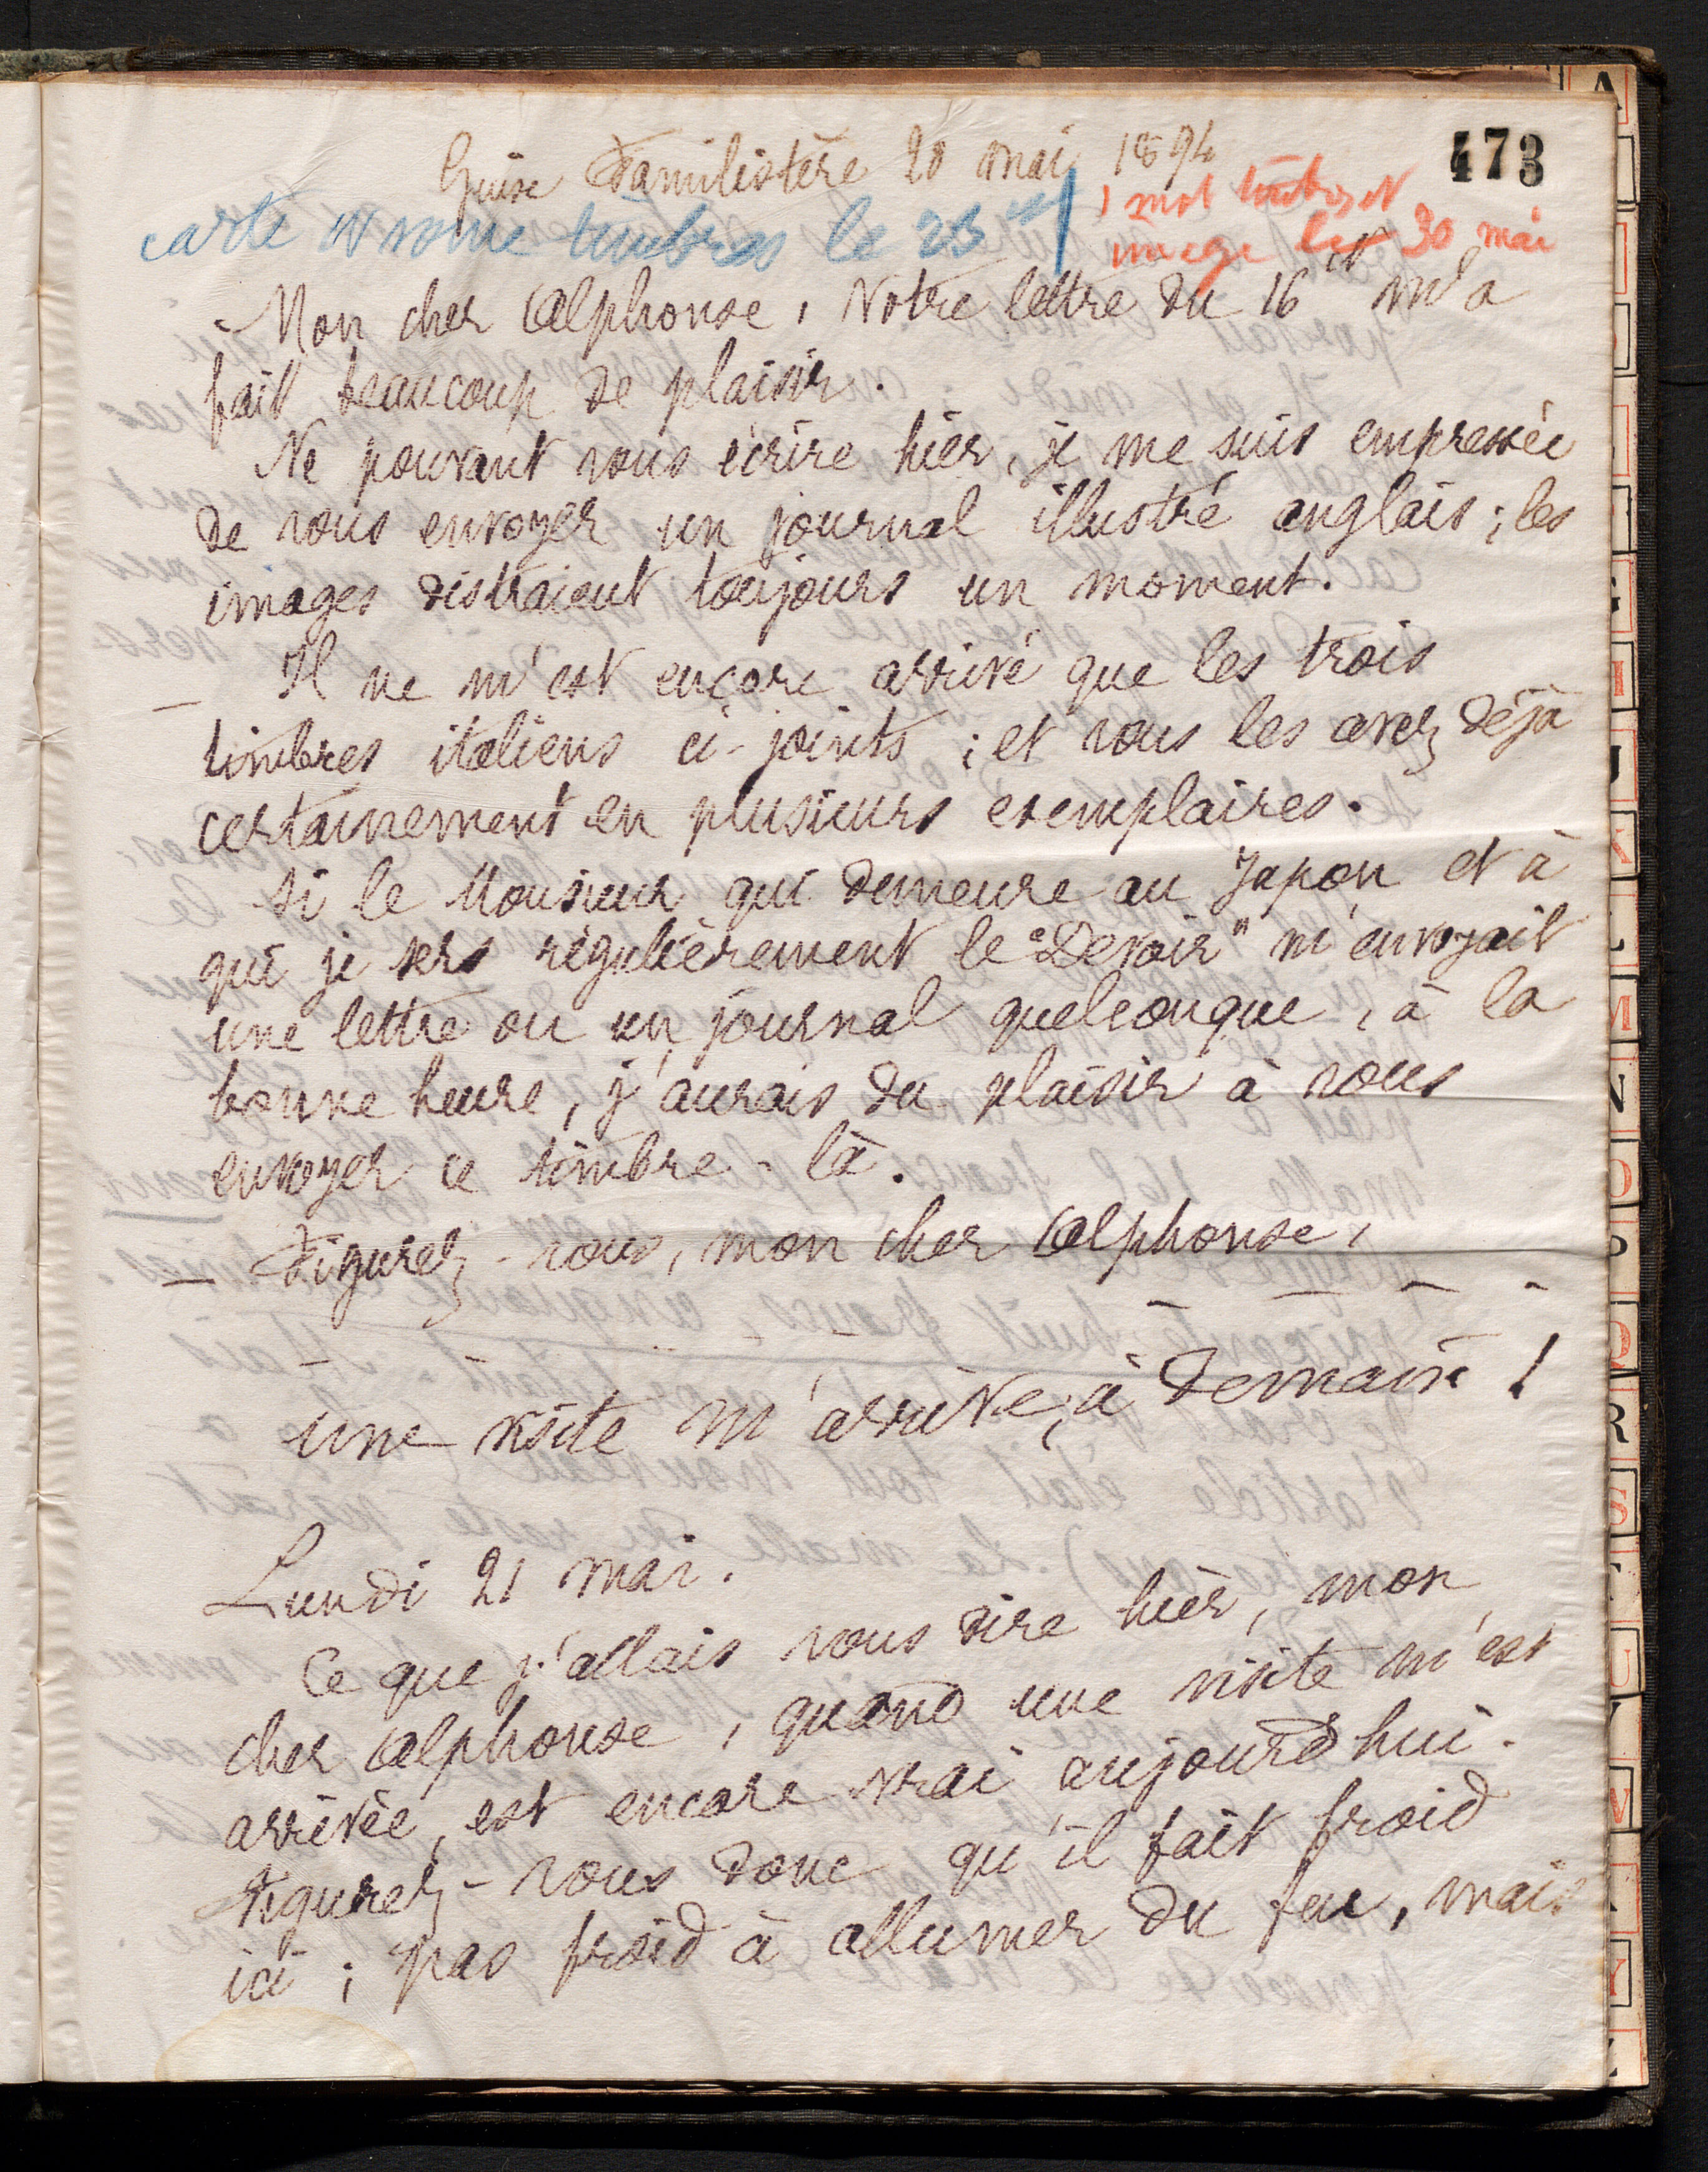 473
Guise Familistère 20 mai 1894
carte et timbres le 23
1 mot timbres et
image le 30 mai
Mon cher Alphonse, Votre lettre du 16 m'a
fait beaucoup de plaisir.
Ne pouvant vous écrire hier, je me suis empressée
de vous envoyer un journal illustré anglais ; les
images distraient toujours un moment.
_ Il ne m'est encore arrivé que les trois
timbres italiens ci-joints ; et vous les avez déjà
certainement en plusieurs exemplaires.
Si le Monsieur qui demeure au Japon et à
qui je sers régulièrement le "Devoir" m'envoyait
une lettre ou un journal quelconque, à la
bonne heure, j'aurais du plaisir à vous
envoyer ce timbre-là.
_ Figurez-vous, mon cher Alphonse,
une visite m'arrive, à demain !
Lundi 21 mai.
Ce que j'allais vous dire hier, mon
cher Alphonse, quand une visite m'est
arrivée, est encore vrai aujourd'hui.
Figurez-vous donc qu'il fait froid
ici ; pas froid à allumer du feu, mais